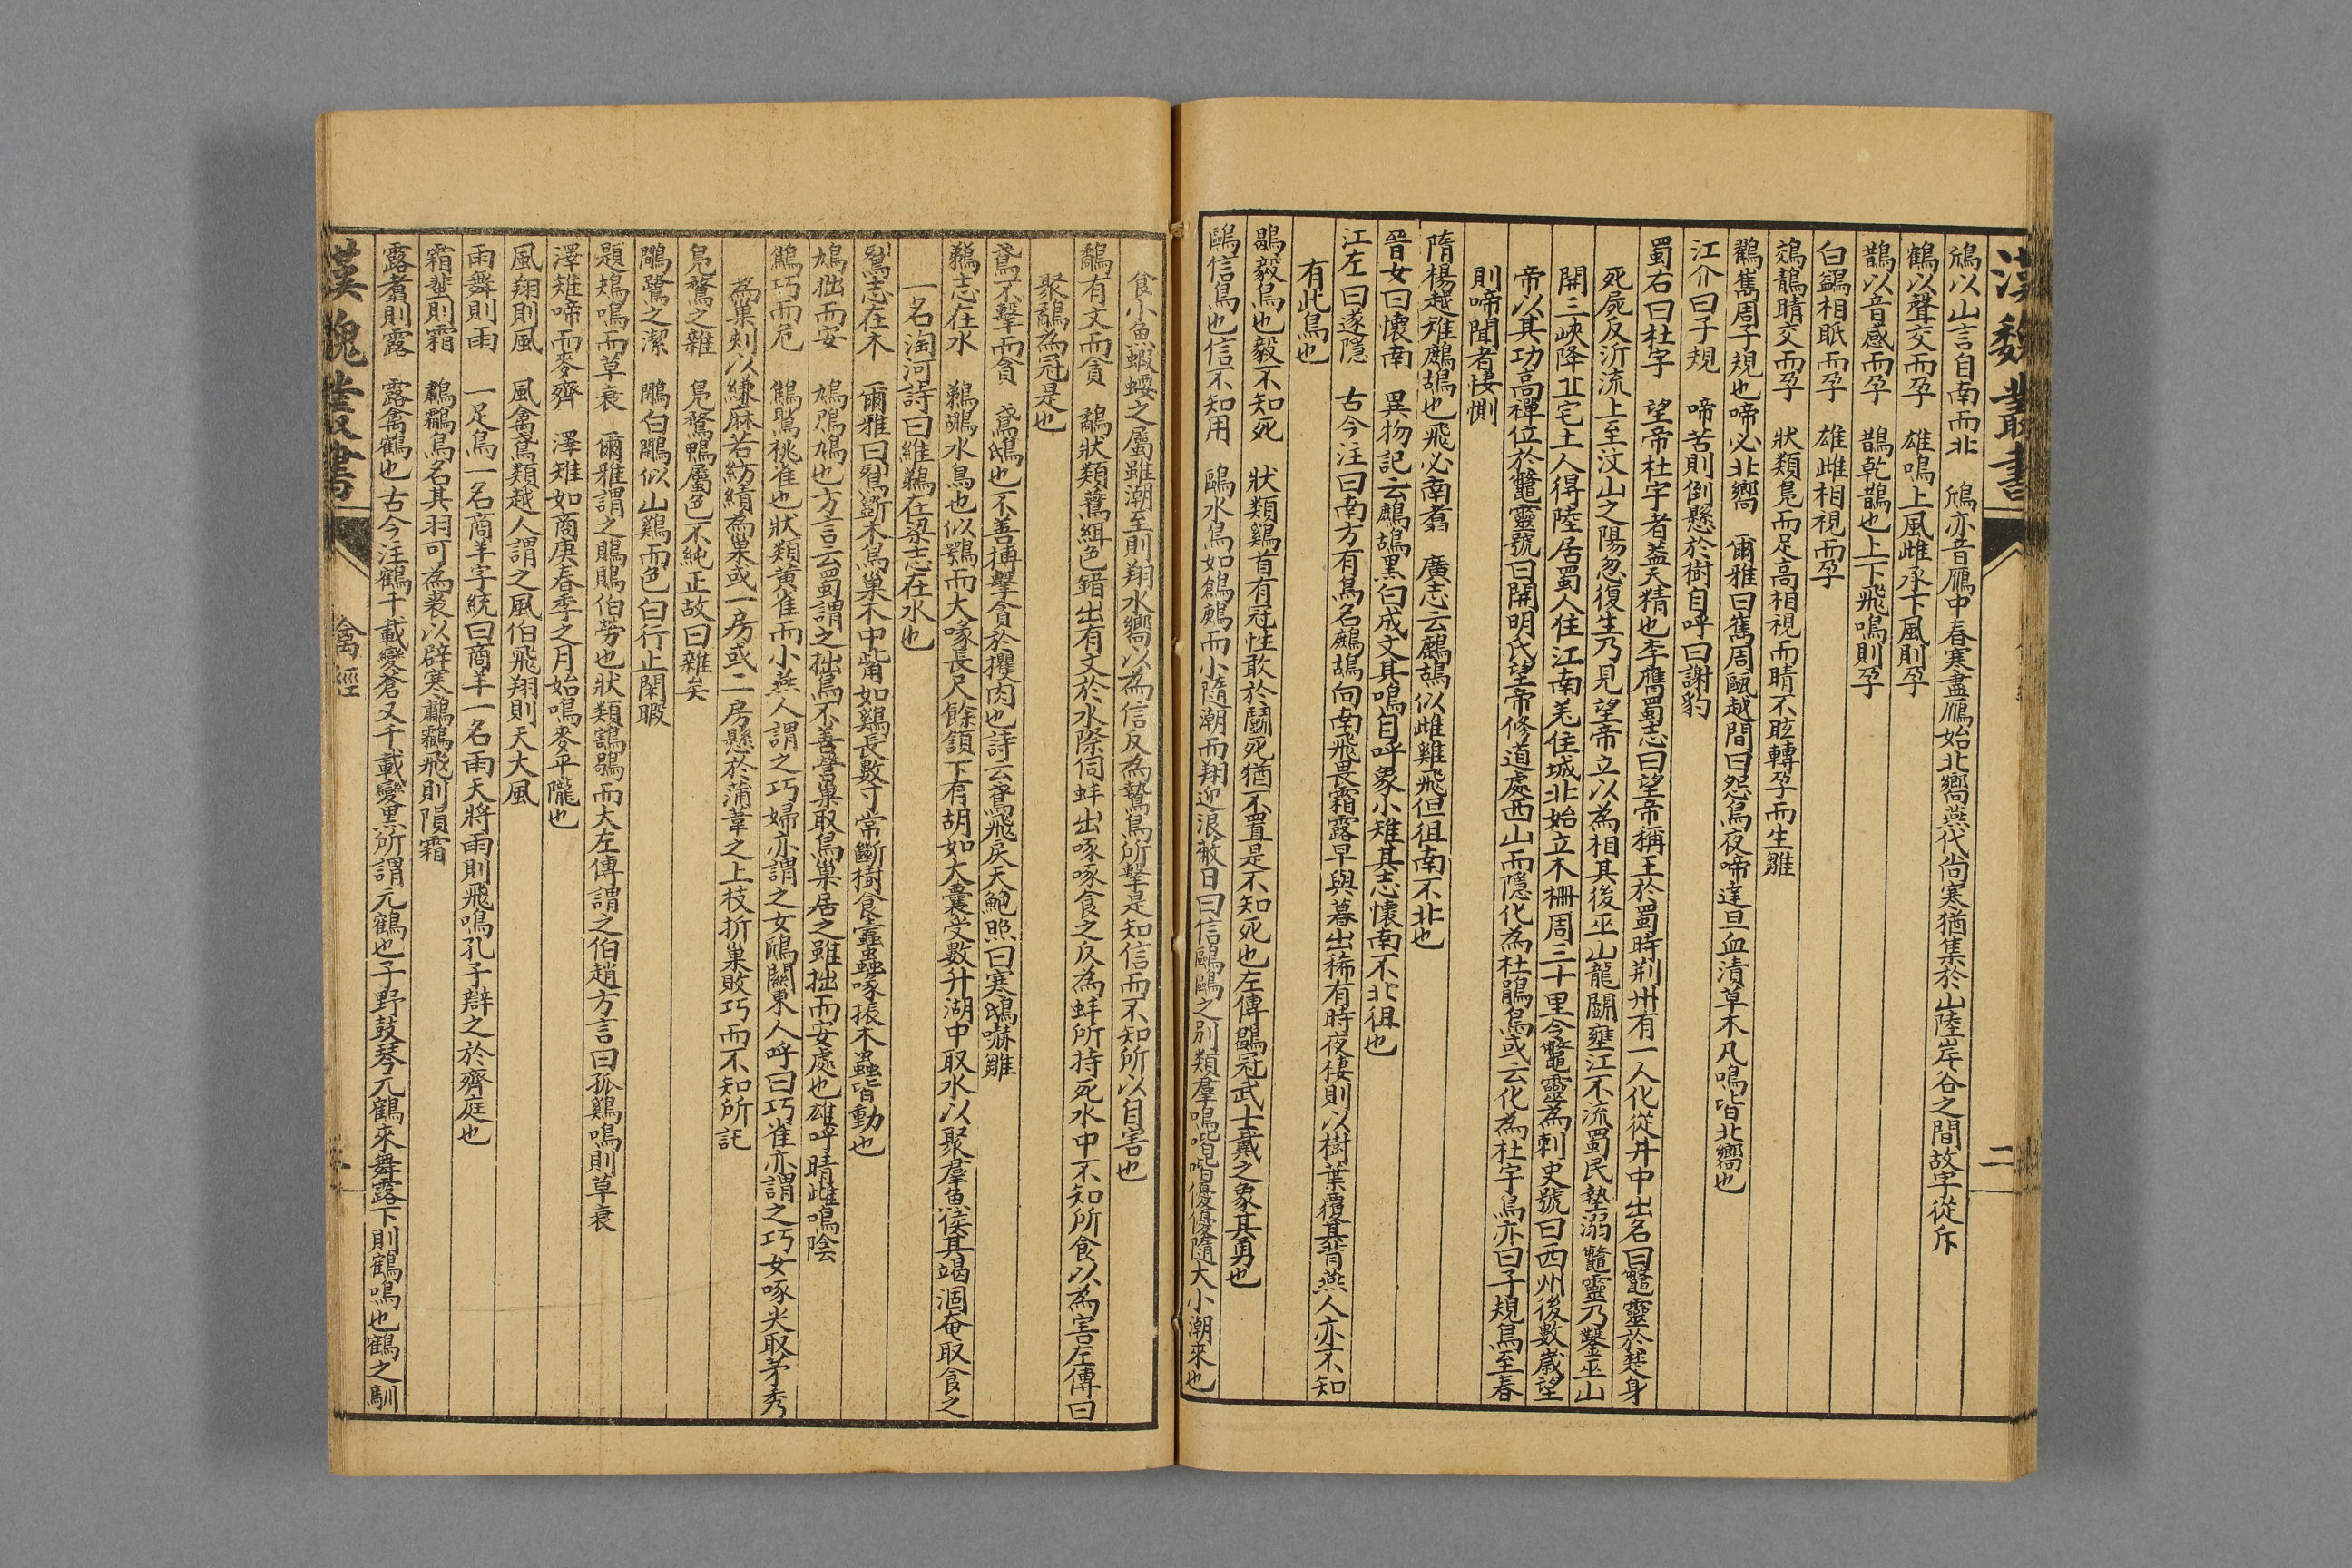 漢魏叢書
二
鳽以山言自南而北　鳽亦音鴈中春寒盡鴈始北嚮燕代尚寒猶集於山陸岸谷之間故字從斥
鶴以聲交而孕　雄鳴上風雌承下風則孕
鵲以音感而孕　鵲乾鵲也上下飛鳴則孕
白鷁相眂而孕　雄雌相視而孕
鵁鶄睛交而孕　狀類鳧而足高相視而睛不眩轉孕而生雛
鸛雟周子規也啼必北嚮　爾雅曰雟周甌越間曰怨鳥夜啼達旦血漬草木凡鳴皆北嚮也
江介曰子規　啼苦則倒懸於樹自呼曰謝豹
蜀右曰杜宇　望帝杜宇者蓋天精也李膺蜀志曰望帝稱王於蜀時荆州有一人化從井中出名曰鼈靈於楚身
死屍反泝流上至汶山之陽忽復生乃見望帝立以為相其後巫山龍鬭壅江不流蜀民墊溺鼈靈乃鑿巫山
開三峽降丘宅土人得陸居蜀人住江南羌住城北始立木柵周三十里令鼈靈為刺史號曰西州後數歲望
帝以其功高禪位於鼈靈號曰開明氏望帝修道處西山而隱化為杜鵑鳥或云化為杜宇鳥亦曰子規鳥至春
則啼聞者悽惻
隋楊越雉鷓鴣也飛必南翥　廣志云鷓鴣似雌雞飛但徂南不北也
晉女曰懷南　異物記云鷓鴣黑白成文其鳴自呼象小雉其志懷南不北徂也
江左曰遂隱　古今注曰南方有鳥名鷓鴣向南飛畏霜露早與暮出稀有時夜棲則以樹葉覆其背燕人亦不知
有此鳥也
鶡毅鳥也毅不知死　狀類鷄首有冠性敢於鬭死猶不置是不知死也左傳鶡冠武士戴之象其勇也
鷗信鳥也信不知用　鷗水鳥如鶬鷓而小隨潮而翔迎浪蔽日曰信鷗鷗之別類羣鳴喈喈優優隨大小潮來也
食小魚蝦蛭之屬雖潮至則翔水嚮以為信反為鷙鳥所擊是知信而不知所以自害也
鷸有文而貪　鷸狀類鷰緝色錯出有文於水際伺蚌出啄啄食之反為蚌所持死水中不知所食以為害左傳曰
聚鷸為冠是也
鳶不擊而貪　鳶鴟也不善搏擊貪於攫肉也詩云鳶飛戾天鮑照曰寒鴟嚇雛
鵜志在水　鵜鶘水鳥也似鶚而大喙長尺餘頷下有胡如大囊受數升湖中取水以聚羣魚侯其竭涸奄取食之
一名淘河詩曰維鵜在梁志在水也
鴷志在木　爾雅曰鴷斲木鳥巢木中觜如鷄長數寸常斷樹食蠹蟲啄振木蟲皆動也
鳩拙而安　鳩鳲鳩也方言云蜀謂之拙鳥不善營巢取鳥巢居之雖拙而安處也雄呼晴雌鳴陰
鷦巧而危　鷦鷯桃雀也狀類黃雀而小燕人謂之巧婦亦謂之女鷗關東人呼曰巧雀亦謂之巧女啄尖取茅秀
為巢刾以縑麻若紡績為巢或一房或二房懸於蒲葦之上枝折巢敗巧而不知所託
鳧鶩之雜　鳧鶩鴨屬色不純正故曰雜矣
鷴鷺之潔　鷴白鷴似山鷄而色白行止閑暇
題鴂鳴而草衰　爾雅謂之鵙鵙伯勞也狀類鶷鶡而大左傳謂之伯趙方言曰孤鷄鳴則草衰
澤雉啼而麥齊　澤雉如商庚春季之月始鳴麥平隴也
風翔則風　風禽鳶類越人謂之風伯飛翔則天大風
雨舞則雨　一足鳥一名商羊字統曰商羊一名雨天將雨則飛鳴孔子辯之於齊庭也
霜蜚則霜　鷫鸘鳥名其羽可為裘以辟寒鷫鸘飛則隕霜
露翥則露　露禽鶴也古今注鶴千載變蒼又千載變黑所謂元鶴也子野鼓琴元鶴來舞露下則鶴鳴也鶴之馴
漢魏叢書　禽經